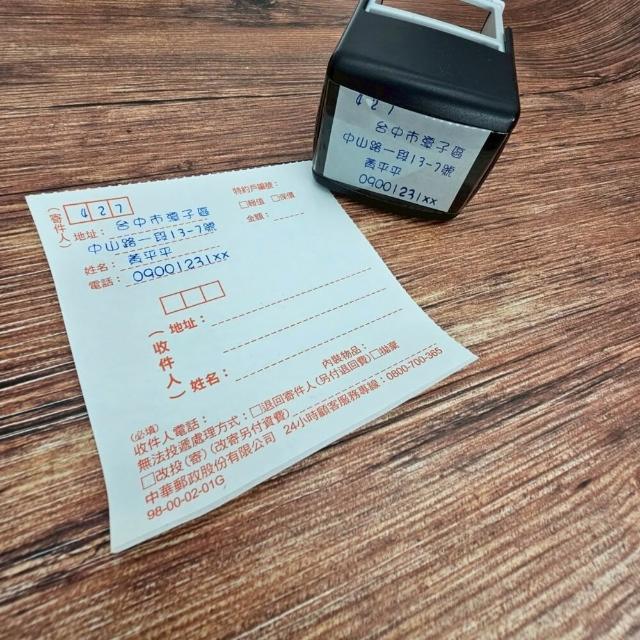 427
台中市潭子區
中山路一段13-7號
黃平平
09001231xx
特約戶編號：
□報值 □保價
金額：
（寄件人）
427
地址：台中市潭子區
中山路一段13-7號
姓名：黃平平
電話：09001231xx
（收件人）
地址：
姓名：
內裝物品：
(必填)
收件人電話：
無法投遞處理方式：□退回寄件人(另付退回費)□拋棄
□改投(寄)(改寄另付資費)
中華郵政股份有限公司 24小時顧客服務專線：0800-700-365
98-00-02-01G